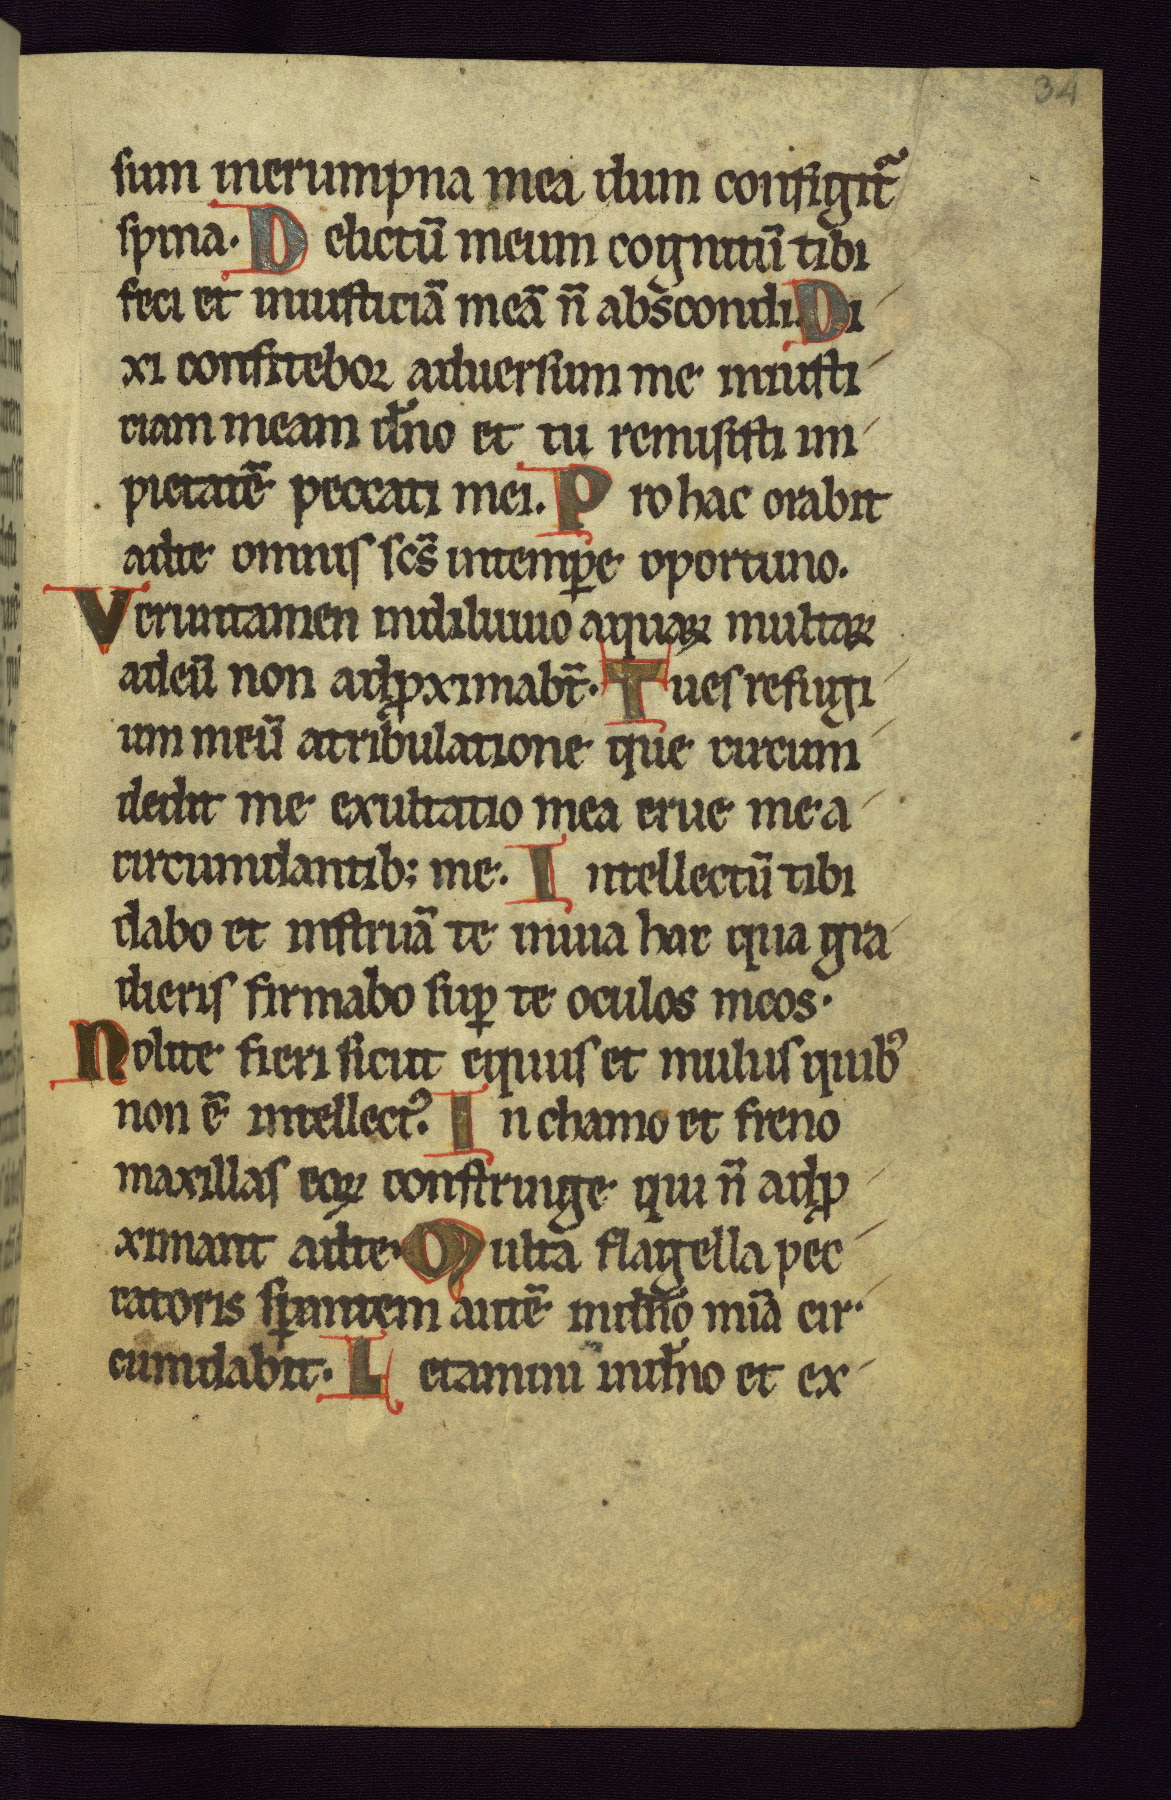 34
sum inerumpna mea dum configit᷑
spina. Delictū meum cognitū tibi
feci et iniusticiā meā n̄ abscondi. Di
xi confitebor aduersum me iniusti
ciam meam dn̄o et tu remisisti im
pietatē peccati mei. Pro hac orabit
adte omnis sc̄s intemꝑe oportuno.
Veruntamen indiluuio aquaꝝ multaꝝ
adeū non adꝓximabt̄. Tu es refugi
um meū atribulatione que circum
dedit me exultatio mea erue me a
circumdantib; me. Intellectū tibi
dabo et instruā te inuia hac qua gra
dieris firmabo suꝑ te oculos meos.
Nolite fieri sicut equus et mulus quibꝰ
non ē intellectꝰ. In chamo et freno
maxillas eoꝝ constringe qui n̄ adꝓ
ximant adte. Multa flagella pec
catoris sꝑantem autē indn̄o mīa cir
cumdabit. Letamini indn̄o et ex